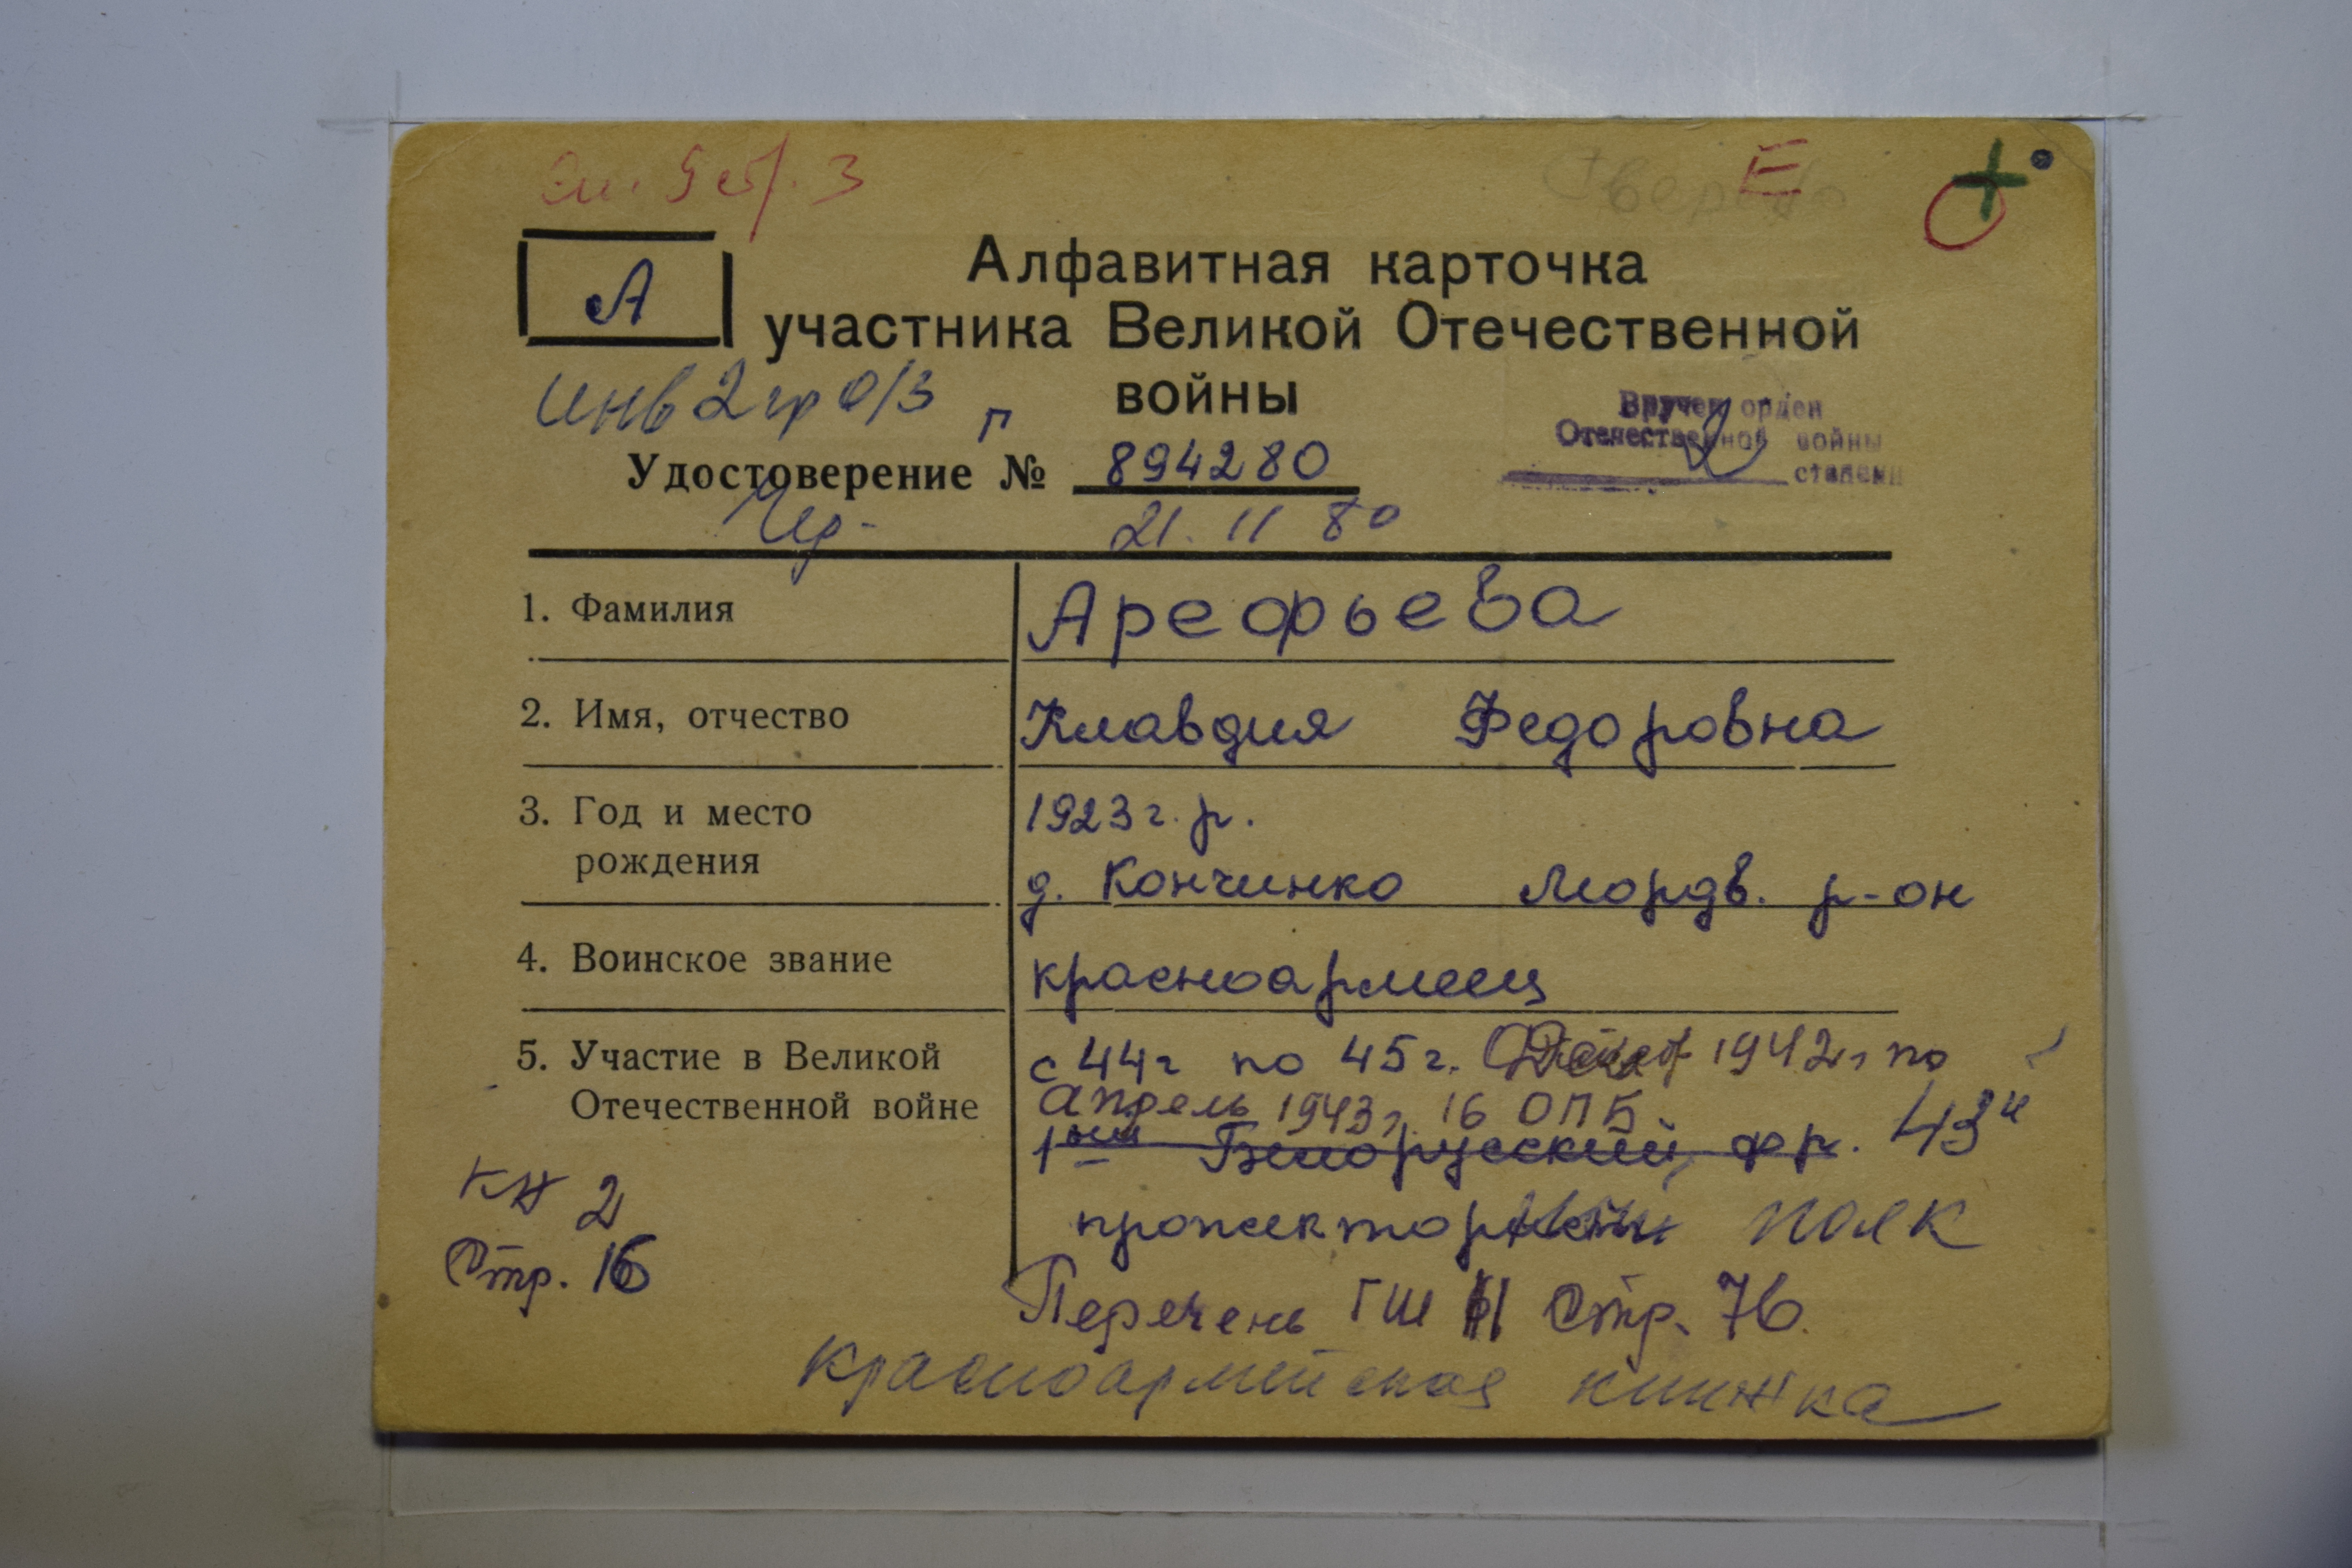 Е
А
Алфавитная карточка
участника Великой Отечественной
войны
инв 2 гр о/з
Вручен орден
Отечественной войны
степени
Удостоверение № 894280
21.11 80
1. Фамилия Арефьева
2. Имя, отчество Клавдия Федоровна
3. Год и место рождения 1923 г.р.
д. Кончинко Мордв. р-он
4. Воинское звание красноармеец
5. Участие в Великой Отечественной войне с 44г по 45г. 1942г по
апрель 1943г. 16 ОПБ.
1ый Белорусский фр. 43й
прожекторный полк
кн 2
Стр. 16
Перечень ГШ Стр. 76.
красноармейская книжка